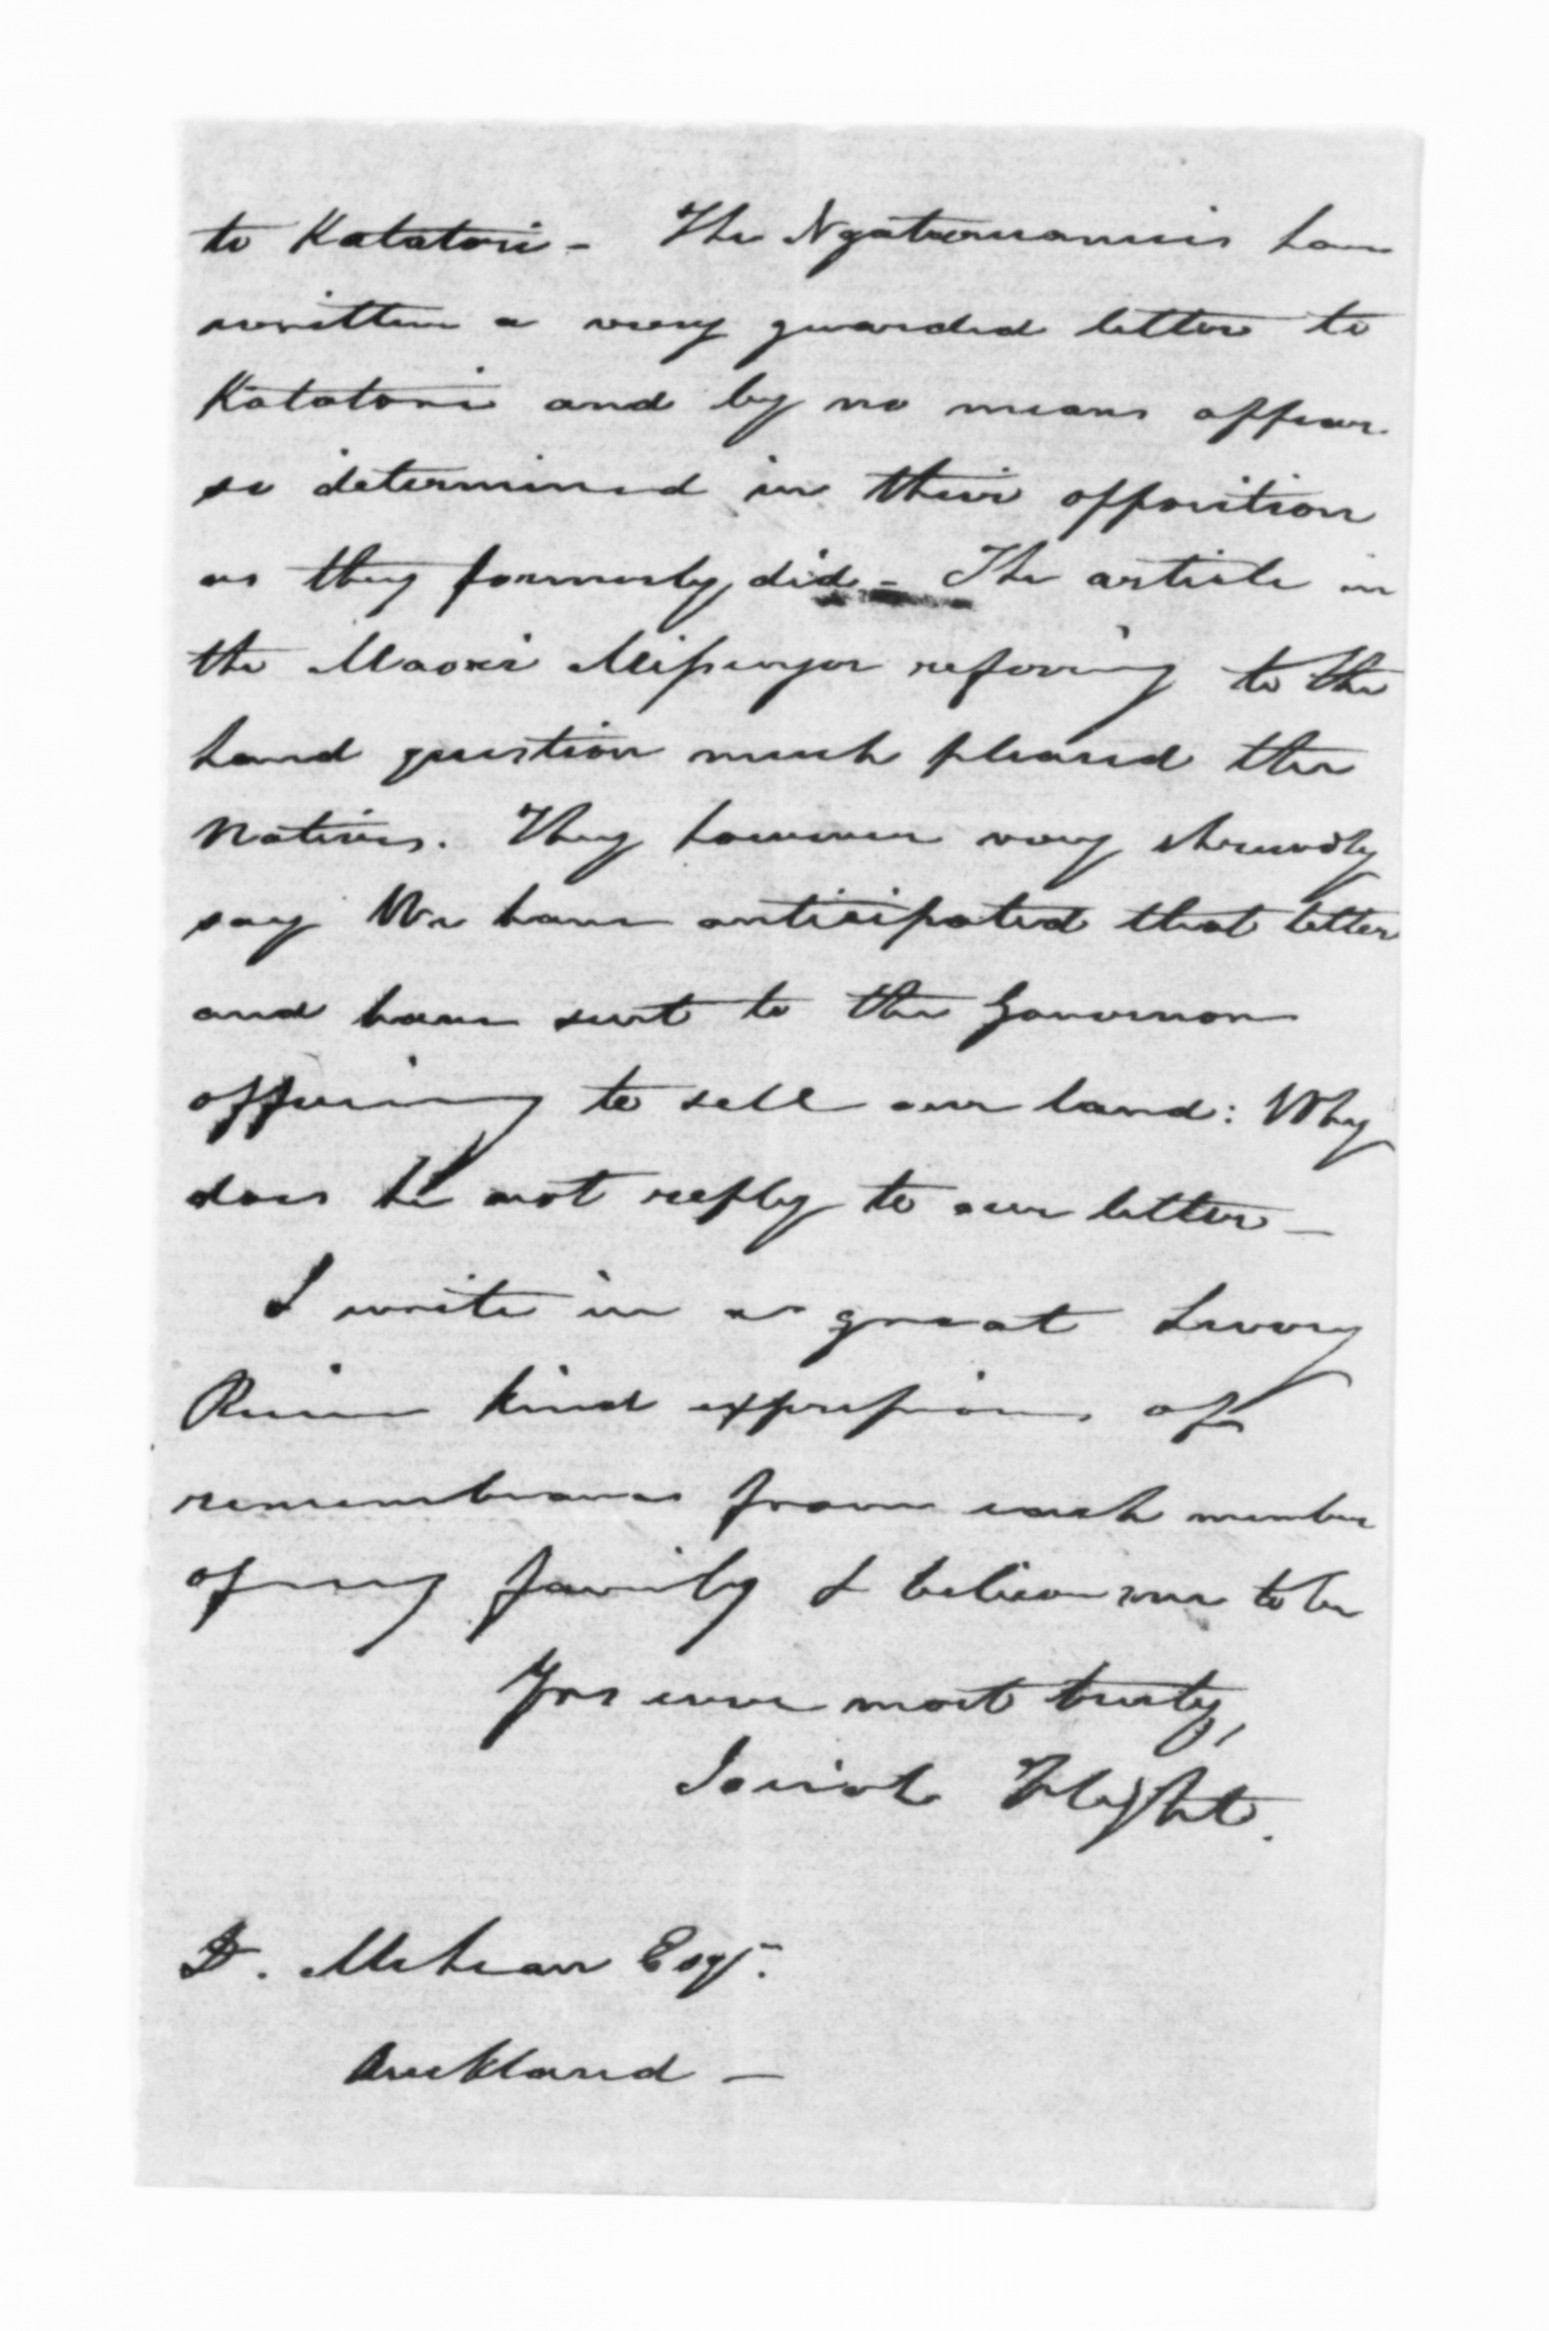 to Katatori - The Ngatiruanuis have
written a very guarded letter to
Katatori and by no means appear
so determined in their opposition
as they formerly did - The article in
the Maori Messenger referring to the
land question much pleased the
Natives. They however very shrewdly
say We have anticipated that letter
and have sent to the Governor
offering to sell our land: Why
does he not reply to our letter -
I write in a great hurry
kind expressions of
remembrance from each member
of my family & believe me to be
Yrs ever most truly,
Josiah Flight.
D. McLean Esqr.
Auckland -